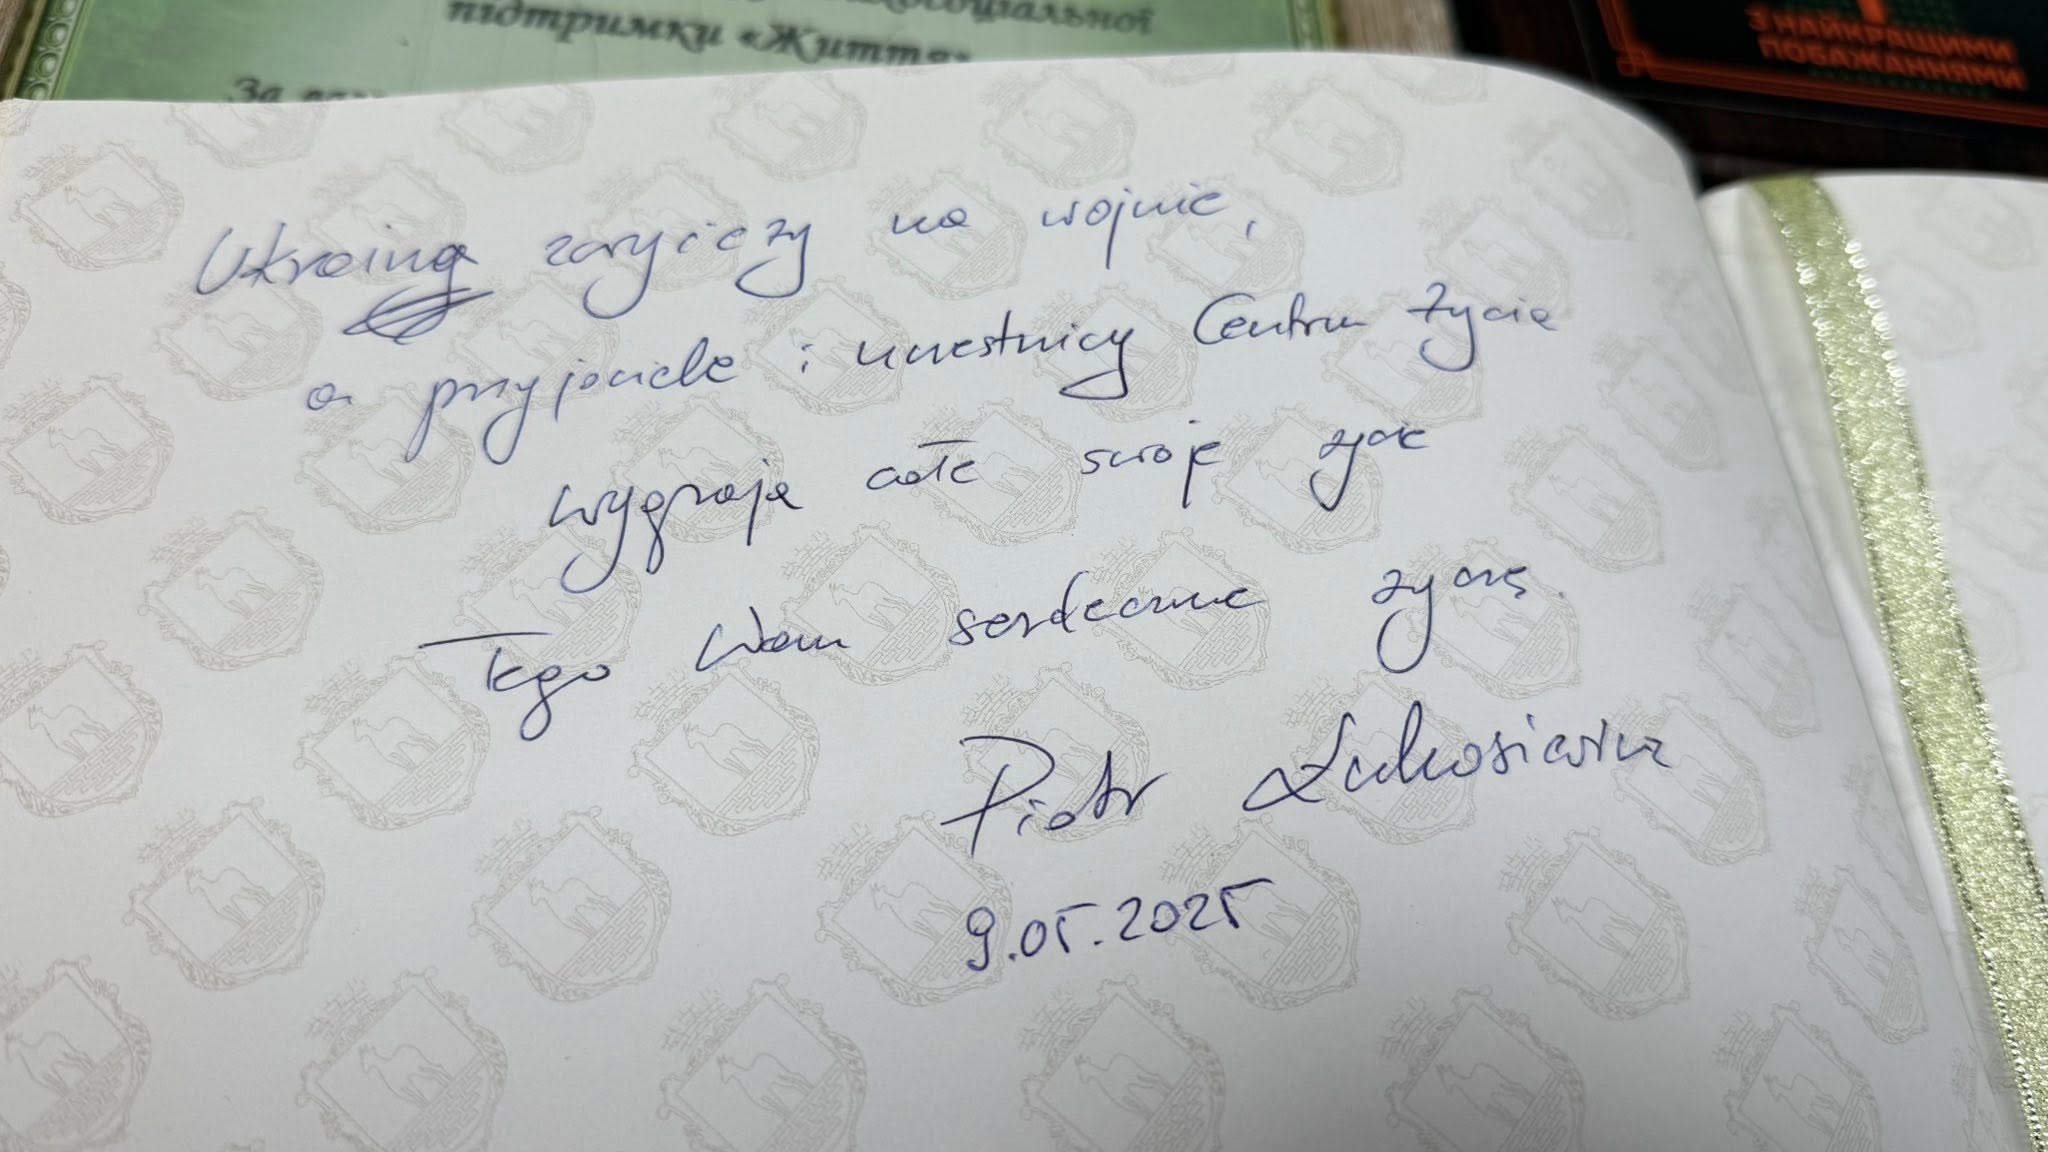 підтримки «Життя»
За
З НАЙКРАЩИМИ
ПОБАЖАННЯМИ
Ukraina zwycięży na wojnie,
a przyjaciele i uczestnicy Centrum Życia
wygrają całe swoje życie
Tego Wam serdecznie życzę.
Piotr Łukasiewicz
9.05.2025